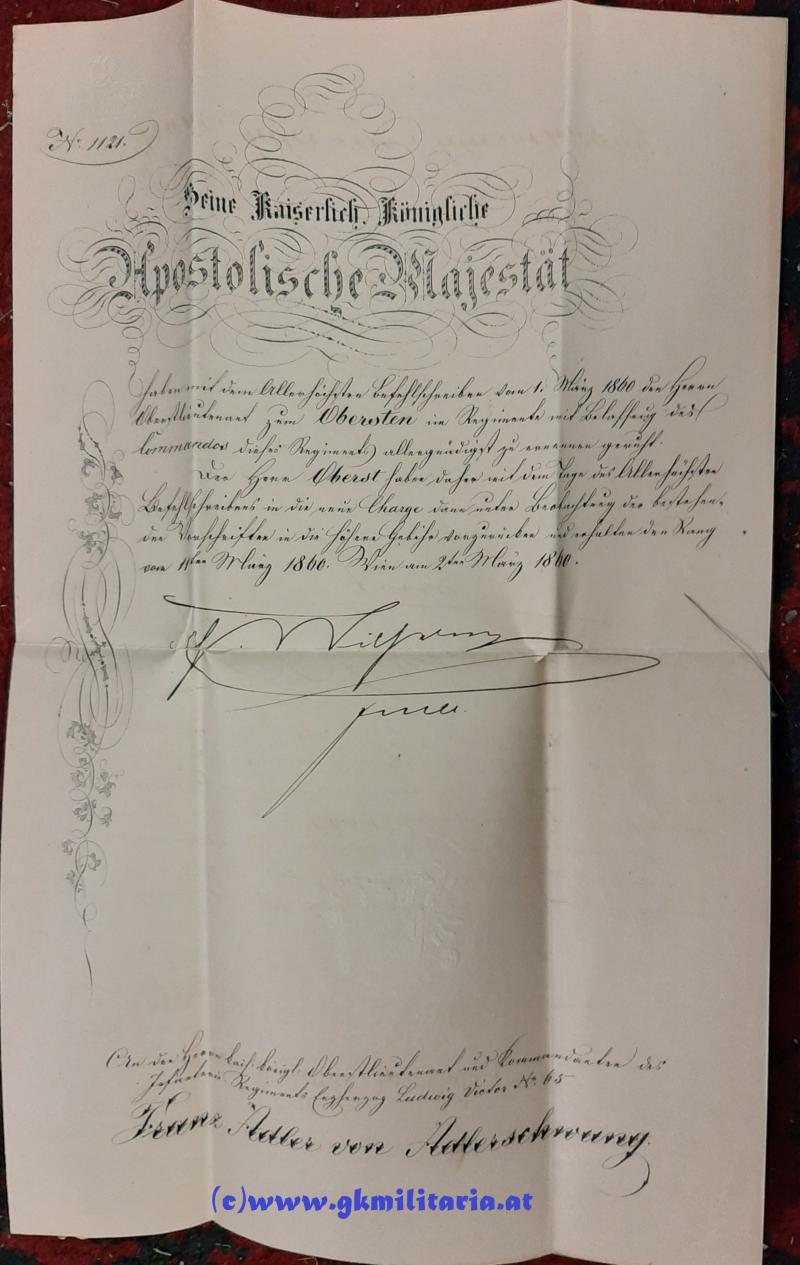 No. 1121.
Seine Kaiserlich, Königliche
Apostolische Majestät
haben mit dem Allerhöchsten Befehlschreiben vom 1. März 1860 den Herrn
Oberstlieutenant zum Obersten im Regimente mit Belassung des
Commandos dieses Regiments allergnädigst zu ernennen geruht.
Der Herr Oberst haben daher mit dem Tage des Allerhöchsten
Befehlschreibens in die neue Charge dann unter Beobachtung der bestehen-
den Vorschriften in die höhere Gebühr vorzurücken und erhalten den Rang
vom März 1860. Wien am 2ten März 1860.
An den Herrn kais: königl: Oberstlieutenant und Kommandanten des
Infanterie Regiments Erzherzog Ludwig Victor No. 65
Franz Adler von Adlerschwung.
(c)www.gkmilitaria.at